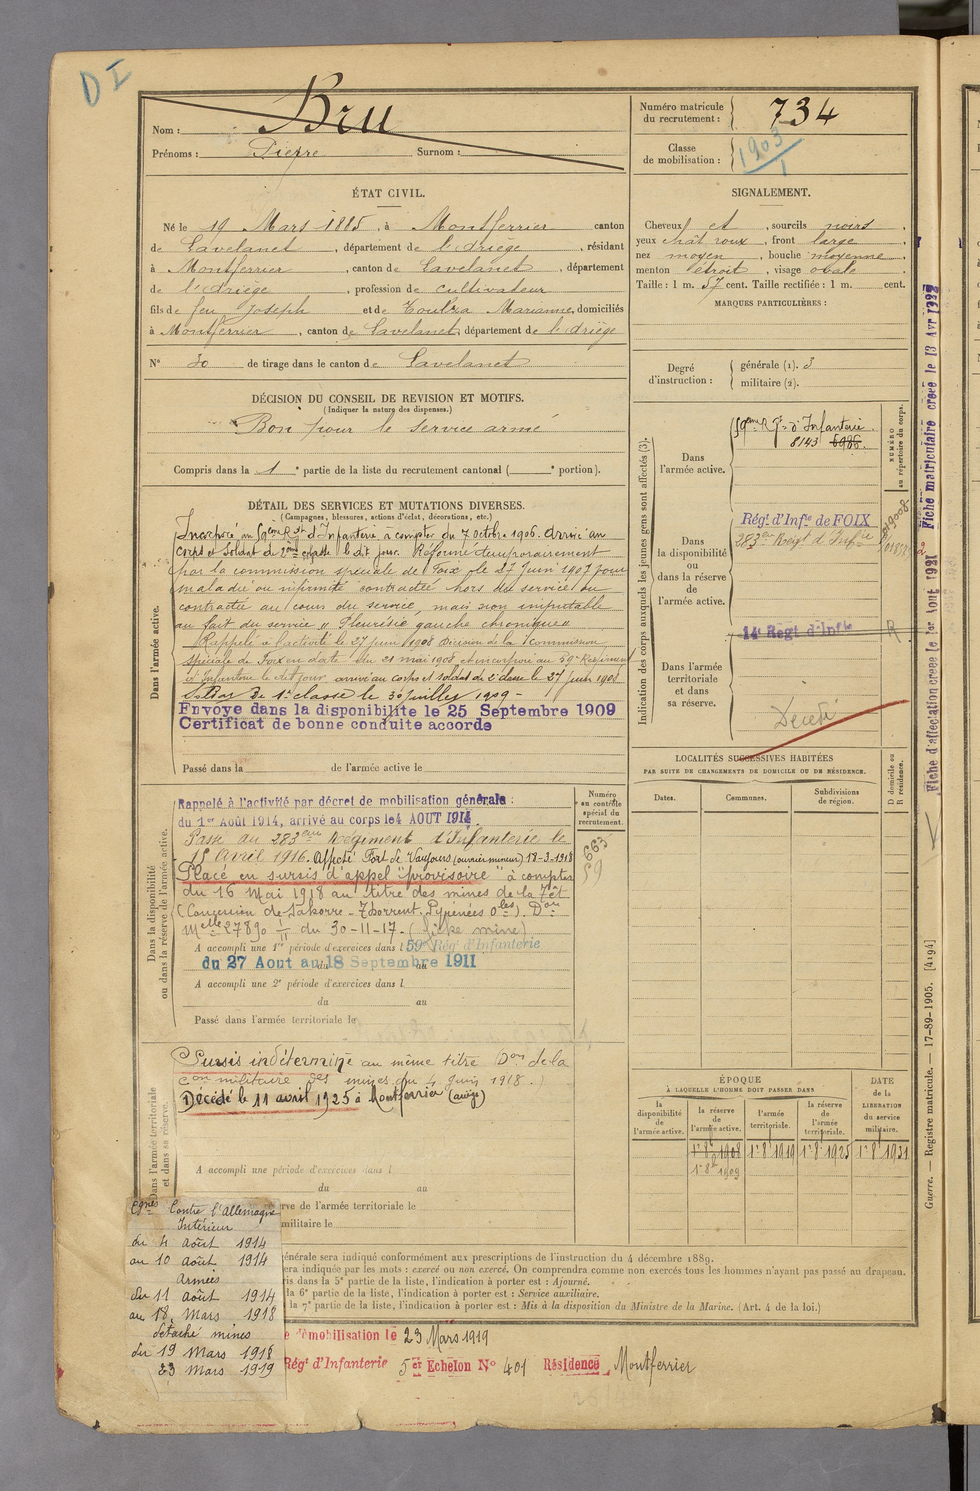 D I
Nom : Bru
Prénoms : Pierre Surnom :
Numéro matricule du recrutement : 734
Classe de mobilisation : 1903
1
ÉTAT CIVIL.
Né le 19 Mars 1885, à Montferrier canton
de Lavelanet, département de l'Ariège, résidant
à Montferrier, canton de Lavelanet, département
de l'Ariège, profession de cultivateur
fils de feu Joseph et de Marianne, domiciliés
à Montferrier, canton de Lavelanet, département de l'Ariège
N° 30 de tirage dans le canton de Lavelanet
SIGNALEMENT.
Cheveux et, sourcils noirs,
yeux chât roux, front large,
nez moyen, bouche moyenne,
menton étroit, visage ovale
Taille : 1 m. 57 cent. Taille rectifiée : 1 m. cent.
MARQUES PARTICULIÈRES :
Degré d'instruction : générale (1). 3
militaire (2).
DÉCISION DU CONSEIL DE REVISION ET MOTIFS.
(Indiquer la nature des dispenses.)
Bon pour le service armé
Compris dans la 1e partie de la liste du recrutement cantonal ( e portion).
DÉTAIL DES SERVICES ET MUTATIONS DIVERSES.
(Campagnes, blessures, actions d'éclat, décorations, etc.)
Dans l'armée active.
Incorporé au 59ème Rgt d'Infanterie à compter du 7 octobre 1906. Arrivé au
corps et soldat de 2ème classe le dit jour. Réformé temporairement
par la commission spéciale de Foix le 27 Juin 1907 pour
maladie ou infirmité contractée hors du service ou
contractée au cours du service, mais non imputable
au fait du service "Pleurésie gauche chronique"
Rappelé à l'activité le 27 juin 1908 Décision de la Commission
spéciale de Foix en date du 21 mai 1908 et incorporé au 59e Régiment
d'Infanterie le dit jour arrivé au corps et soldat de 2e classe le 27 juin 1908
Soldat de 1e classe le 30 juillet 1909 -
Envoye dans la disponibilite le 25 Septembre 1909
Certificat de bonne conduite accorde
Passé dans la de l'armée active le
Indication des corps auxquels les jeunes gens sont affectés (3).
NUMÉRO au répertoire du corps.
Dans l'armée active.
59ème Rgt d'Infanterie.
8143 6986.
Dans la disponibilité ou dans la réserve de l'armée active.
Régt. d'Infie de FOIX
283em Régt d'Infie
14e Regt d'Infie
R
Dans l'armée territoriale et dans sa réserve.
Décédé
LOCALITÉS SUCCESSIVES HABITÉES
PAR SUITE DE CHANGEMENTS DE DOMICILE OU DE RÉSIDENCE.
Dates. Communes. Subdivisions de région. D domicile ou R résidence.
Dans la disponibilité ou dans la réserve de l'armée active.
Numéro au contrôle spécial du recrutement.
663
59
Rappelé à l'activité par décret de mobilisation générale :
du 1er Août 1914, arrivé au corps le 4 AOUT 1914.
Passé au 283eme Régiment d'Infanterie le
15 Avril 1916. Affecté Fort de Vaujours (ouvrier mineur) 18-3-1918
Placé en sursis d'appel "provisoire" à compter
du 16 Mai 1918 au titre des mines de la Têt
(Concession de Sahorre - Thorrent. Pyrénées Oles). Don
Melle 27890 I/II du 30-11-17. (fiche mine)
A accompli une 1re période d'exercices dans l 59e Régt d'Infanterie
du 27 Aout au 18 Septembre 1911
A accompli une 2e période d'exercices dans l
du au
Passé dans l'armée territoriale le
Dans l'armée territoriale et dans sa réserve.
Sursis indéterminé au même titre (Don de la
Con militaire des mines du 4 Juin 1918.)
Décédé le 11 avril 1925 à Montferrier (ariège)
A accompli une période d'exercices dans l
du au
rve de l'armée territoriale le
militaire le
ÉPOQUE
À LAQUELLE L'HOMME DOIT PASSER DANS
DATE de la LIBÉRATION du service militaire.
la disponibilité de l'armée active.
la réserve de l'armée active.
l'armée territoriale.
la réserve de l'armée territoriale.
1r 8b 1908 1r 8b 1919 1r 8b 1925 1r 8b 1931
1r 8b 1909
Cgnes Contre l'Allemagne
Intérieur
du 4 Août 1914
au 10 Août 1914
Armées
du 11 Août 1914
au 18 Mars 1918
détaché mines
du 19 Mars 1918
23 Mars 1919
énérale sera indiqué conformément aux prescriptions de l'instruction du 4 décembre 1889.
era indiquée par les mots : exercé ou non exercé. On comprendra comme non exercés tous les hommes n'ayant pas passé au drapeau.
ris dans la 5e partie de la liste, l'indication à porter est : Ajourné.
la 6e partie de la liste, l'indication à porter est : Service auxiliaire.
la 7e partie de la liste, l'indication à porter est : Mis à la disposition du Ministre de la Marine. (Art. 4 de la loi.)
e démobilisation le 23 Mars 1919
Régt d'Infanterie 5er Echelon N° 401 Résidence Montferrier
Guerre. — Registre matricule. — 17-89-1905. [4194]
Fiche d'affectation creee le 1er Aout 1921 Fiche matriculaire creee le 13 Avr 1922